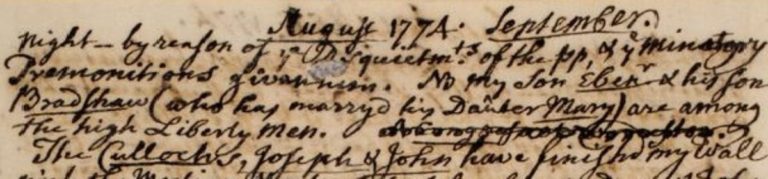 August 1774. September.
night — by reason of yͤ Disquietmᵗˢ of the pp, & yͤ minatory
Premonitions given him. NB my Son Ebenʳ & his son
Bradshaw (who has marryd his Dauter Mary) are among
the high Liberty Men.
The Cullochs, Joseph & John have finishd my Wall